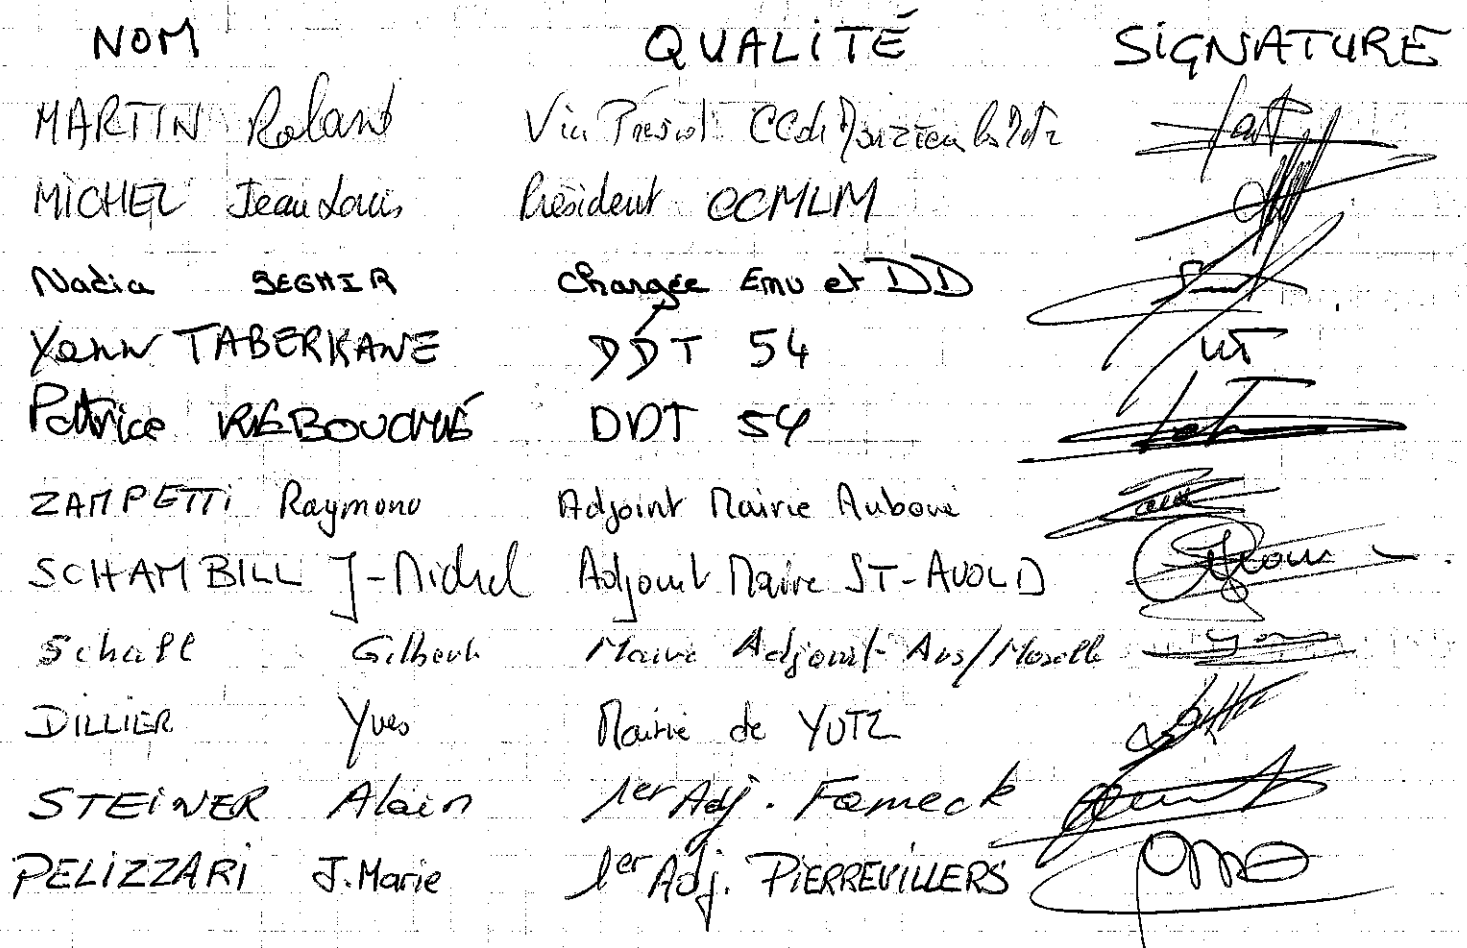 NOM QUALITÉ SIGNATURE
MARTIN Roland Vice Présid CC de
MICHEL Jean Louis Président CCMLM
Nadia SEGHIR Chargée Env et DD
Yann TABERKANE DDT 54
Patrice REBOUCHÉ DDT 54
ZAMPETTI Raymond Adjoint Mairie Auboué
SCHAMBILL J-Michel Adjoint Maire ST-AVOLD
Schall Gilbert Maire Adjoint Ars/Moselle
DILLIER Yves Mairie de YUTZ
STEINER Alain 1er Adj. Fameck
PELIZZARI J.Marie 1er Adj. PIERREVILLERS